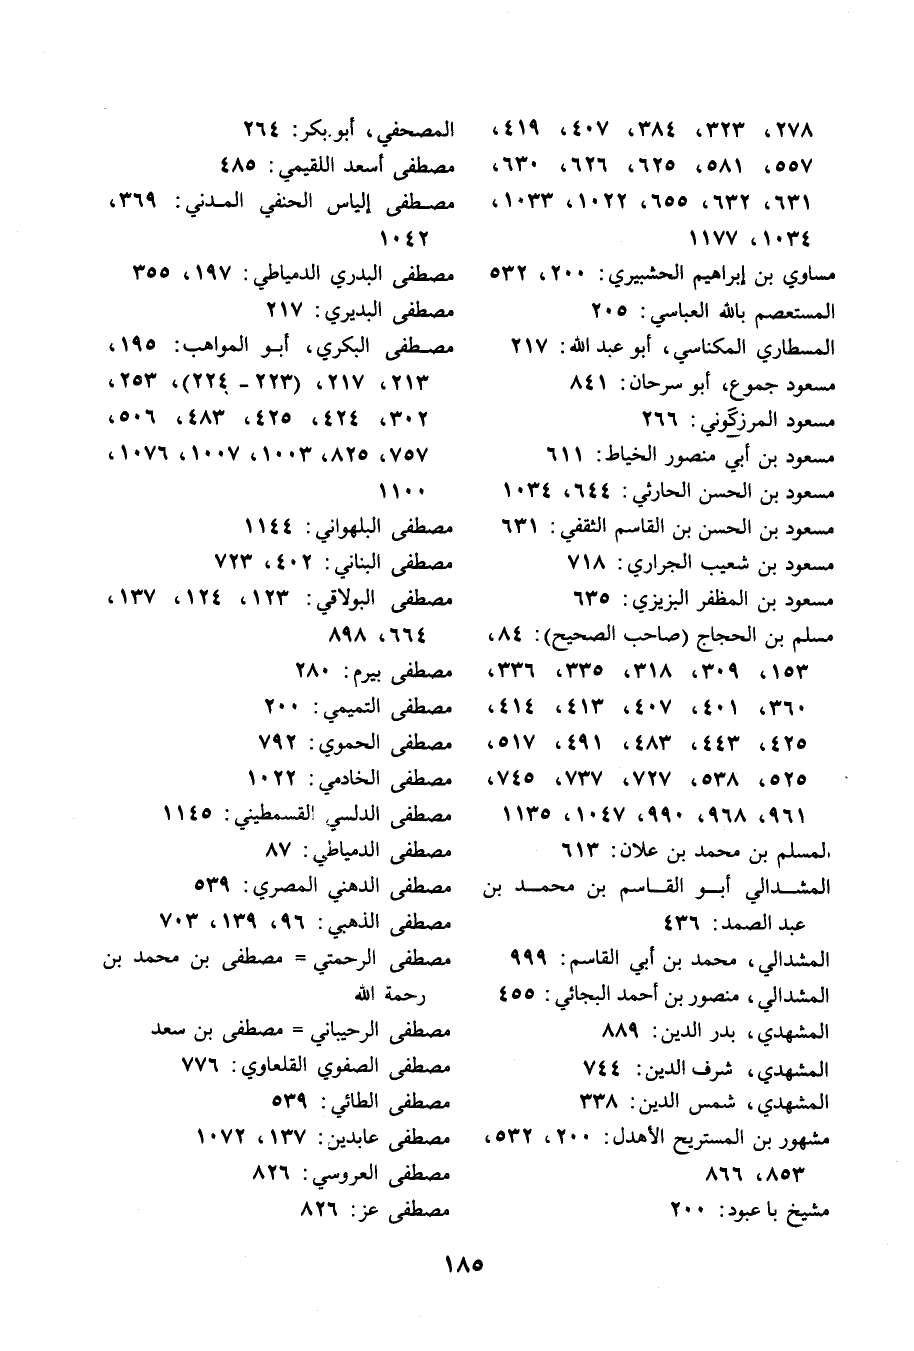 ٢٧٨، ٣٢٣، ٣٨٤، ٤٠٧، ٤١٩،
٥٥٧، ٥٨١، ٦٢٥، ٦٢٦، ٦٣٠،
٦٣١، ٦٣٢، ٦٥٥، ١٠٢٢، ١٠٣٣،
١٠٣٤، ١١٧٧
مساوي بن إبراهيم الحشيبري: ٢٠٠، ٥٣٢
المستعصم بالله العباسي: ٢٠٥
المسطاري المكناسي، أبو عبد الله: ٢١٧
مسعود جموع، أبو سرحان: ٨٤١
مسعود المرزگوني: ٢٦٦
مسعود بن أبي منصور الخياط: ٦١١
مسعود بن الحسن الحارثي: ٦٤٤، ١٠٣٤
مسعود بن الحسن بن القاسم الثقفي: ٦٣١
مسعود بن شعيب الجراري: ٧١٨
مسعود بن المظفر البزيزي: ٦٣٥
مسلم بن الحجاج (صاحب الصحيح): ٨٤،
١٥٣، ٣٠٩، ٣١٨، ٣٣٥، ٣٣٦،
٣٦٠، ٤٠١، ٤٠٧، ٤١٣، ٤١٤،
٤٢٥، ٤٤٣، ٤٨٣، ٤٩١، ٥١٧،
٥٢٥، ٥٣٨، ٧٢٧، ٧٣٧، ٧٤٥،
٩٦١، ٩٦٨، ٩٩٠، ١٠٤٧، ١١٣٥
المسلم بن محمد بن علان: ٦١٣
المشدالي أبو القاسم بن محمد بن
عبد الصمد: ٤٣٦
المشدالي، محمد بن أبي القاسم: ٩٩٩
المشدالي، منصور بن أحمد البجائي: ٤٥٥
المشهدي، بدر الدين: ٨٨٩
المشهدي، شرف الدين: ٧٤٤
المشهدي، شمس الدين: ٣٣٨
مشهور بن المستريح الأهدل: ٢٠٠، ٥٣٢،
٨٥٣، ٨٦٦
مشيخ با عبود: ٢٠٠
المصحفي، أبو بكر: ٢٦٤
مصطفى أسعد اللقيمي: ٤٨٥
مصطفى إلياس الحنفي المدني: ٣٦٩،
١٠٤٢
مصطفى البدري الدمياطي: ١٩٧، ٣٥٥
مصطفى البديري: ٢١٧
مصطفى البكري، أبو المواهب: ١٩٥،
٢١٣، ٢١٧، (٢٢٣ - ٢٢٤)، ٢٥٣،
٣٠٢، ٤٢٤، ٤٢٥، ٤٨٣، ٥٠٦،
٧٥٧، ٨٢٥، ١٠٠٣، ١٠٠٧، ١٠٧٦،
١١٠٠
مصطفى البلهواني: ١١٤٤
مصطفى البناني: ٤٠٢، ٧٢٣
مصطفى البولاقي: ١٢٣، ١٢٤، ١٣٧،
٦٦٤، ٨٩٨
مصطفى بيرم: ٢٨٠
مصطفى التميمي: ٢٠٠
مصطفى الحموي: ٧٩٢
مصطفى الخادمي: ١٠٢٢
مصطفى الدلسي القسمطيني: ١١٤٥
مصطفى الدمياطي: ٨٧
مصطفى الدهني المصري: ٥٣٩
مصطفى الذهبي: ٩٦، ١٣٩، ٧٠٣
مصطفى الرحمتي = مصطفى بن محمد بن
رحمة الله
مصطفى الرحيباني = مصطفى بن سعد
مصطفى الصفوي القلعاوي: ٧٧٦
مصطفى الطائي: ٥٣٩
مصطفى عابدين: ١٣٧، ١٠٧٢
مصطفى العروسي: ٨٢٦
مصطفى عز: ٨٢٦
١٨٥